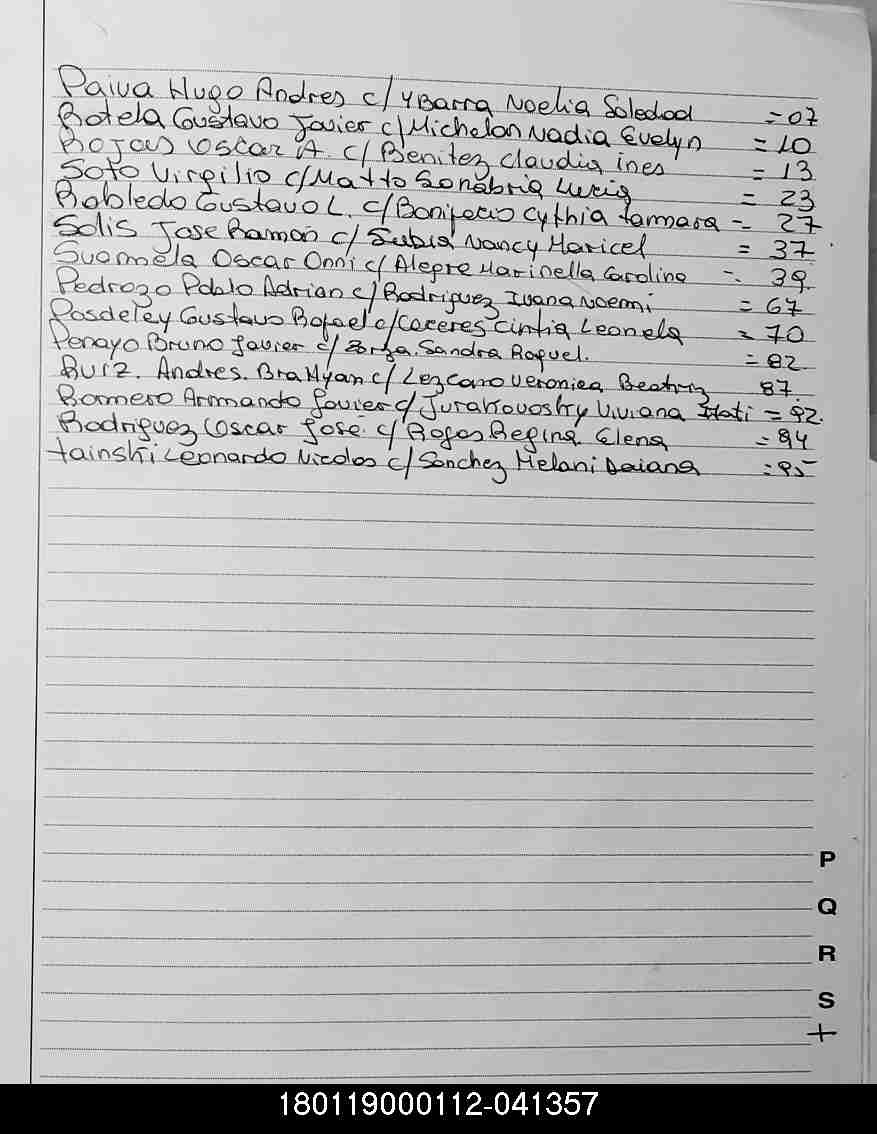 Paiva Hugo Andres c/ Ybarra Noelia Soledad = 07
Botela Gustavo Javier c/ Michelon Nadia Evelyn = 10
Rojas Oscar A. c/ Benitez Claudia ines = 13
Soto Virgilio c/ Matto Sanabria Lucia = 23
Robledo Gustavo L. c/ Bonifacio Cythia tammara = 27
Solis Jose Ramon c/ Subia Nancy Maricel = 37
Suomela Oscar Onni c/ Alegre Marinella Carolina = 39
Pedrozo Pablo Adrian c/ Rodriguez Ivana Noemi = 67
Posdeley Gustavo Rafael c/ Caceres Cintia Leonela = 70
Penayo Bruno Javier c/ Borja Sandra Raquel. = 82
Ruiz. Andres. Brahyan c/ Lezcano Veronica Beatriz 87.
Romero Armando Javier c/ Jurakovosky Viviana Itati = 92.
Rodriguez Oscar Jose. c/ Rojas Regina Elena = 94
tainski Leonardo Nicolas c/ Sanchez Melani Daiana = 95
P
Q
R
S
+
180119000112-041357